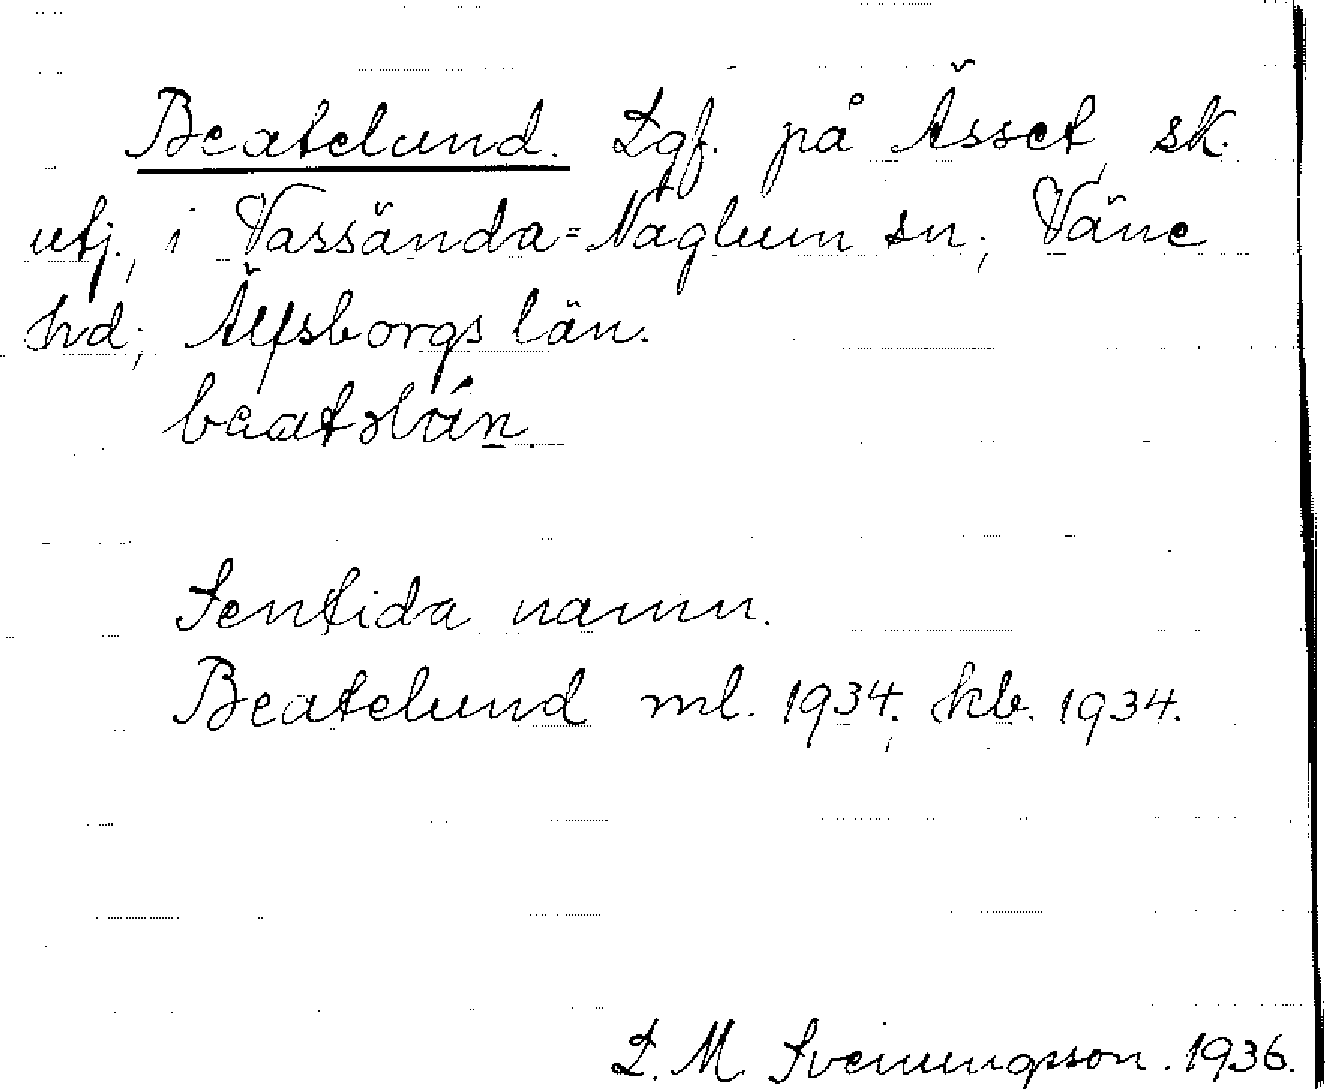 Beatelund. Lgf. på Ässet, sk.
utj., i Vassända=Naglum sn, Väne
hd, Älfsborgs län.
Sentida namn.
Beatelund ml. 1934, kb. 1934.
D. M. Svenningsson. 1936.